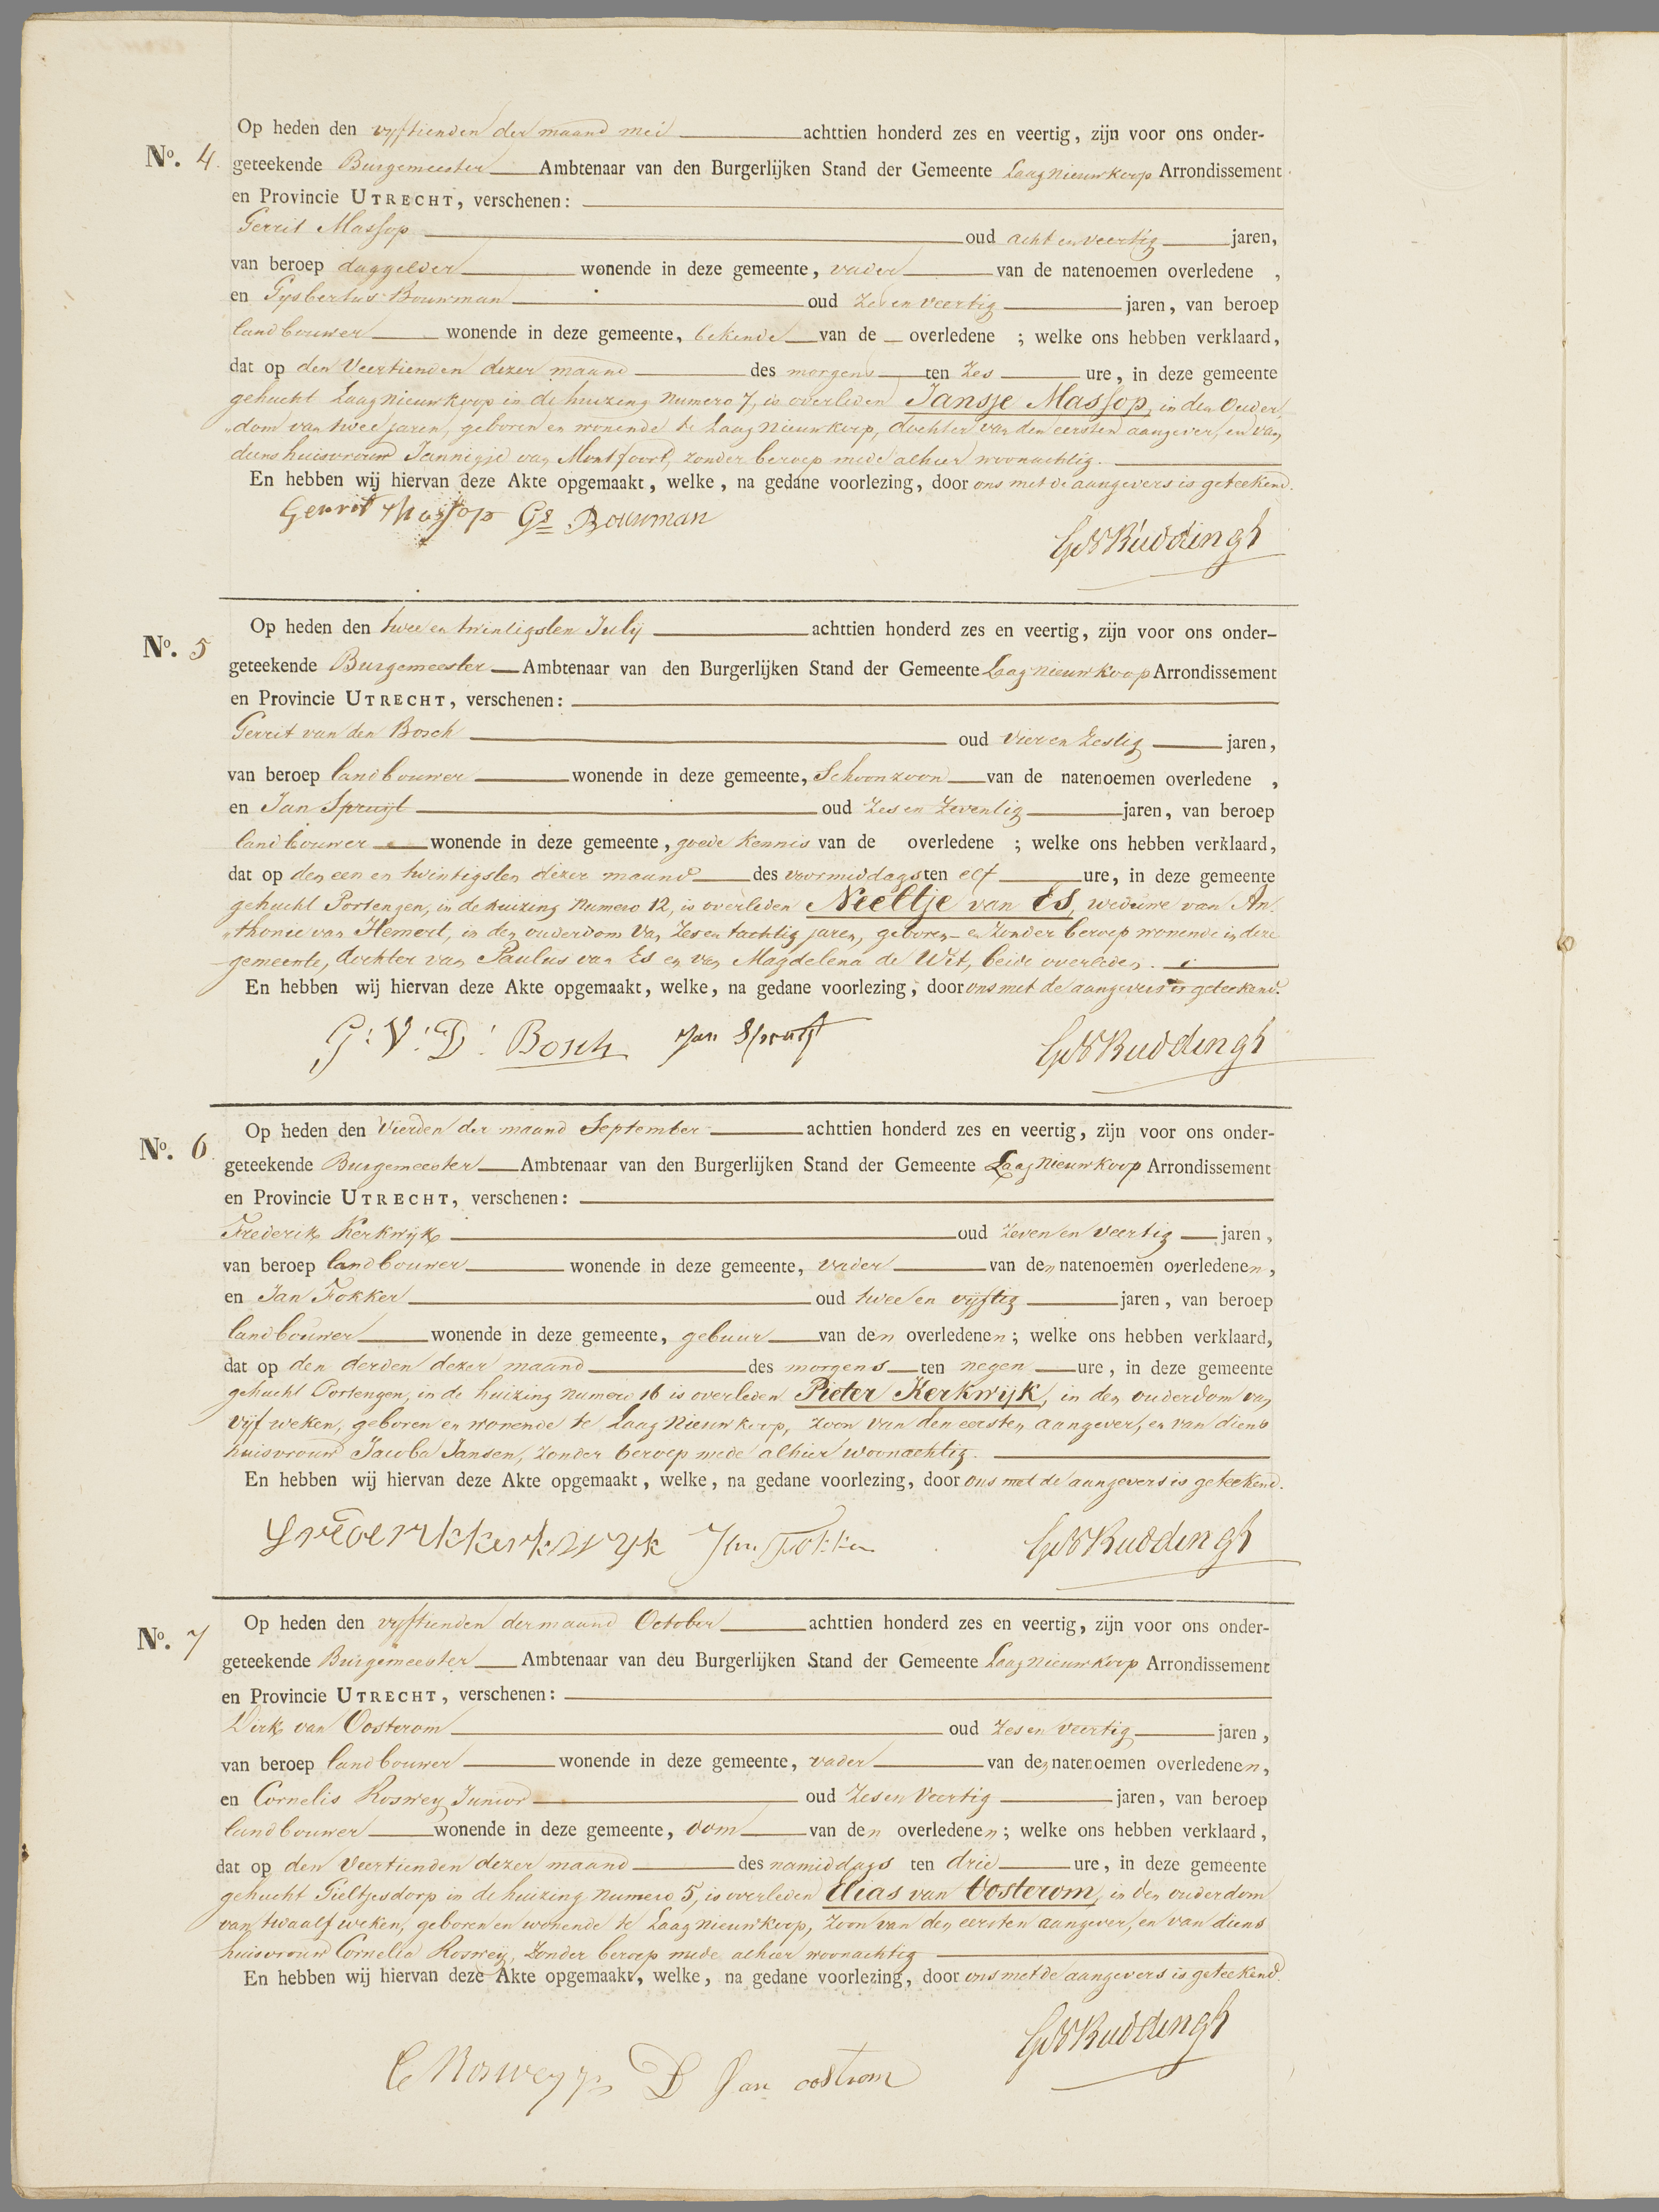 Op heden den vyftienden der maand mei achttien honderd zes en veertig, zijn voor ons onder-
No. 4. geteekende Burgemeester Ambtenaar van den Burgerlijken Stand der Gemeente Laagnieuwkoop Arrondissement
en Provincie UTRECHT, verschenen:
Gerrit Massop oud acht en veertig jaren,
van beroep daggelder wonende in deze gemeente, vader van de natenoemen overledene ,
en Gysbertus Bouwman oud zes en veertig jaren, van beroep
landbouwer wonende in deze gemeente, bekende van de overledene ; welke ons hebben verklaard,
dat op den Veertienden dezer maand des morgens ten zes ure, in deze gemeente
gehucht Laagnieuwkoop in de huizing numero 7, is overleden Jansje Massop, in den Ouder-
„dom van twee jaren, geboren en wonende te Laag Nieuwkoop, dochter van den eersten aangever, en van
diens huisvrouw Jannigje van Montfoort, zonder beroep mede alhier woonachtig.
En hebben wij hiervan deze Akte opgemaakt, welke, na gedane voorlezing, door ons met de aangevers is geteekend.
Gerrit Massop Gs Bouwman
GW Ruddingh
Op heden den twee en twintigsten July achttien honderd zes en veertig, zijn voor ons onder-
No. 5 geteekende Burgemeester Ambtenaar van den Burgerlijken Stand der Gemeente Laagnieuwkoop Arrondissement
en Provincie UTRECHT, verschenen:
Gerrit van den Bosch oud vier en zestig jaren,
van beroep landbouwer wonende in deze gemeente, Schoonzoon van de natenoemen overledene ,
en Jan Spruijt oud zes en zeventig jaren, van beroep
landbouwer wonende in deze gemeente, goede kennis van de overledene ; welke ons hebben verklaard,
dat op den een en twintigsten dezer maand des voormiddags ten elf ure, in deze gemeente
gehucht Portengen, in de huizing numero 12, is overleden Neeltje van Es, weduwe van An-
„thonie van Hemert, in den ouderdom van zes en tachtig jaren, geboren en zonder beroep wonende in deze
gemeente, dochter van Paulus van Es en van Magdelena de Wit, beide overleden.
En hebben wij hiervan deze Akte opgemaakt, welke, na gedane voorlezing, door ons met de aangevers is geteekend.
G: V: D: Bosch Jan Spruijt
GW Ruddingh
Op heden den Vierden der maand September achttien honderd zes en veertig, zijn voor ons onder-
No. 6 geteekende Burgemeester Ambtenaar van den Burgerlijken Stand der Gemeente Laag Nieuwkoop Arrondissement
en Provincie UTRECHT, verschenen:
Frederik Kerkwijk oud zeven en veertig jaren,
van beroep landbouwer wonende in deze gemeente, vader van den natenoemen overledenen,
en Jan Fokker oud twee en vijftig jaren, van beroep
landbouwer wonende in deze gemeente, gebuur van den overledenen; welke ons hebben verklaard,
dat op den derden dezer maand des morgens ten negen ure, in deze gemeente
gehucht Portengen, in de huizing numero 16 is overleden Pieter Kerkwijk, in den ouderdom van
vijf weken, geboren en wonende te Laag Nieuwkoop, zoon van den eersten aangever, en van diens
huisvrouw Jacoba Jansen, zonder beroep mede alhier woonachtig.
En hebben wij hiervan deze Akte opgemaakt, welke, na gedane voorlezing, door ons met de aangevers is geteekend.
Frederik kerkwyk Jan Fokker
GW Ruddingh
Op heden den vyftienden der maand October achttien honderd zes en veertig, zijn voor ons onder-
No. 7 geteekende Burgemeester Ambtenaar van deu Burgerlijken Stand der Gemeente Laagnieuwkoop Arrondissement
en Provincie UTRECHT, verschenen:
Dirk van Oosterom oud zes en veertig jaren,
van beroep landbouwer wonende in deze gemeente, vader van den natenoemen overledenen,
en Cornelis Roswey Junior oud zes en Veertig jaren, van beroep
landbouwer wonende in deze gemeente, oom van den overledenen; welke ons hebben verklaard,
dat op den Veertienden dezer maand des namiddags ten drie ure, in deze gemeente
gehucht Gieltjesdorp in de huizing numero 5, is overleden Elias van Oosterom, in den ouderdom
van twaalf weken, geboren en wonende te Laagnieuwkoop, zoon van den eersten aangever, en van diens
huisvrouw Cornelia Roswey, zonder beroep mede alhier woonachtig
En hebben wij hiervan deze Akte opgemaakt, welke, na gedane voorlezing, door ons met de aangevers is geteekend.
GW Ruddingh
C Roswey jr D Van oostrom